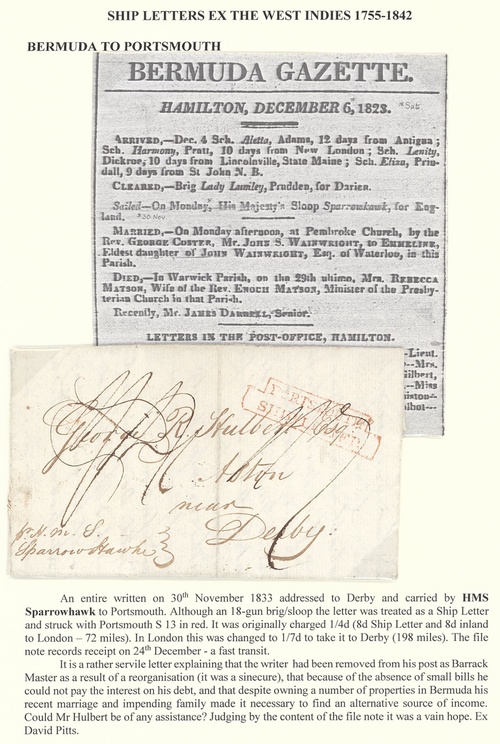 SHIP LETTERS EX THE WEST INDIES 1755-1842
BERMUDA TO PORTSMOUTH
BERMUDA GAZETTE.
HAMILTON, DECEMBER 6, 1823.
ARRIVED,—Dec. 4 Sch. Aletta, Adams, 12 days from Antigua;
Sch. Harmony, Pratt, 10 days from New London; Sch. Lenity,
Dickroe, 10 days from Lincolnville, State Maine; Sch. Eliza, Prin-
dall, 9 days from St John N. B.
CLEARED,—Brig Lady Lumley, Prudden, for Darien.
Sailed—On Monday, His Majesty's Sloop Sparrowhawk, for Eng-
land. *30 Nov
MARRIED,—On Monday afternoon, at Pembroke Church, by the
Rev. GEORGE COSTER, Mr. JOHN S. WAINWRIGHT, to EMMELINE,
Eldest daughter of JOHN WAINWRIGHT, Esq. of Waterloo, in this
Parish.
DIED,—In Warwick Parish, on the 29th ultimo, Mrs. REBECCA
MATSON, Wife of the Rev. ENOCH MATSON, Minister of the Presby-
terian Church in that Parish.
Recently, Mr. JAMES DARRELL, Senior.
LETTERS IN THE POST-OFFICE, HAMILTON.
—Lieut.
—Mrs.
Gilbert,
—Miss
PORTSMOUTH
SHIP LETTER
George R. Hulbert Esq
Aston
near
Derby:
pr H. M. S.
Sparrow Hawke
An entire written on 30th November 1833 addressed to Derby and carried by HMS
Sparrowhawk to Portsmouth. Although an 18-gun brig/sloop the letter was treated as a Ship Letter
and struck with Portsmouth S 13 in red. It was originally charged 1/4d (8d Ship Letter and 8d inland
to London – 72 miles). In London this was changed to 1/7d to take it to Derby (198 miles). The file
note records receipt on 24th December - a fast transit.
It is a rather servile letter explaining that the writer had been removed from his post as Barrack
Master as a result of a reorganisation (it was a sinecure), that because of the absence of small bills he
could not pay the interest on his debt, and that despite owning a number of properties in Bermuda his
recent marriage and impending family made it necessary to find an alternative source of income.
Could Mr Hulbert be of any assistance? Judging by the content of the file note it was a vain hope. Ex
David Pitts.